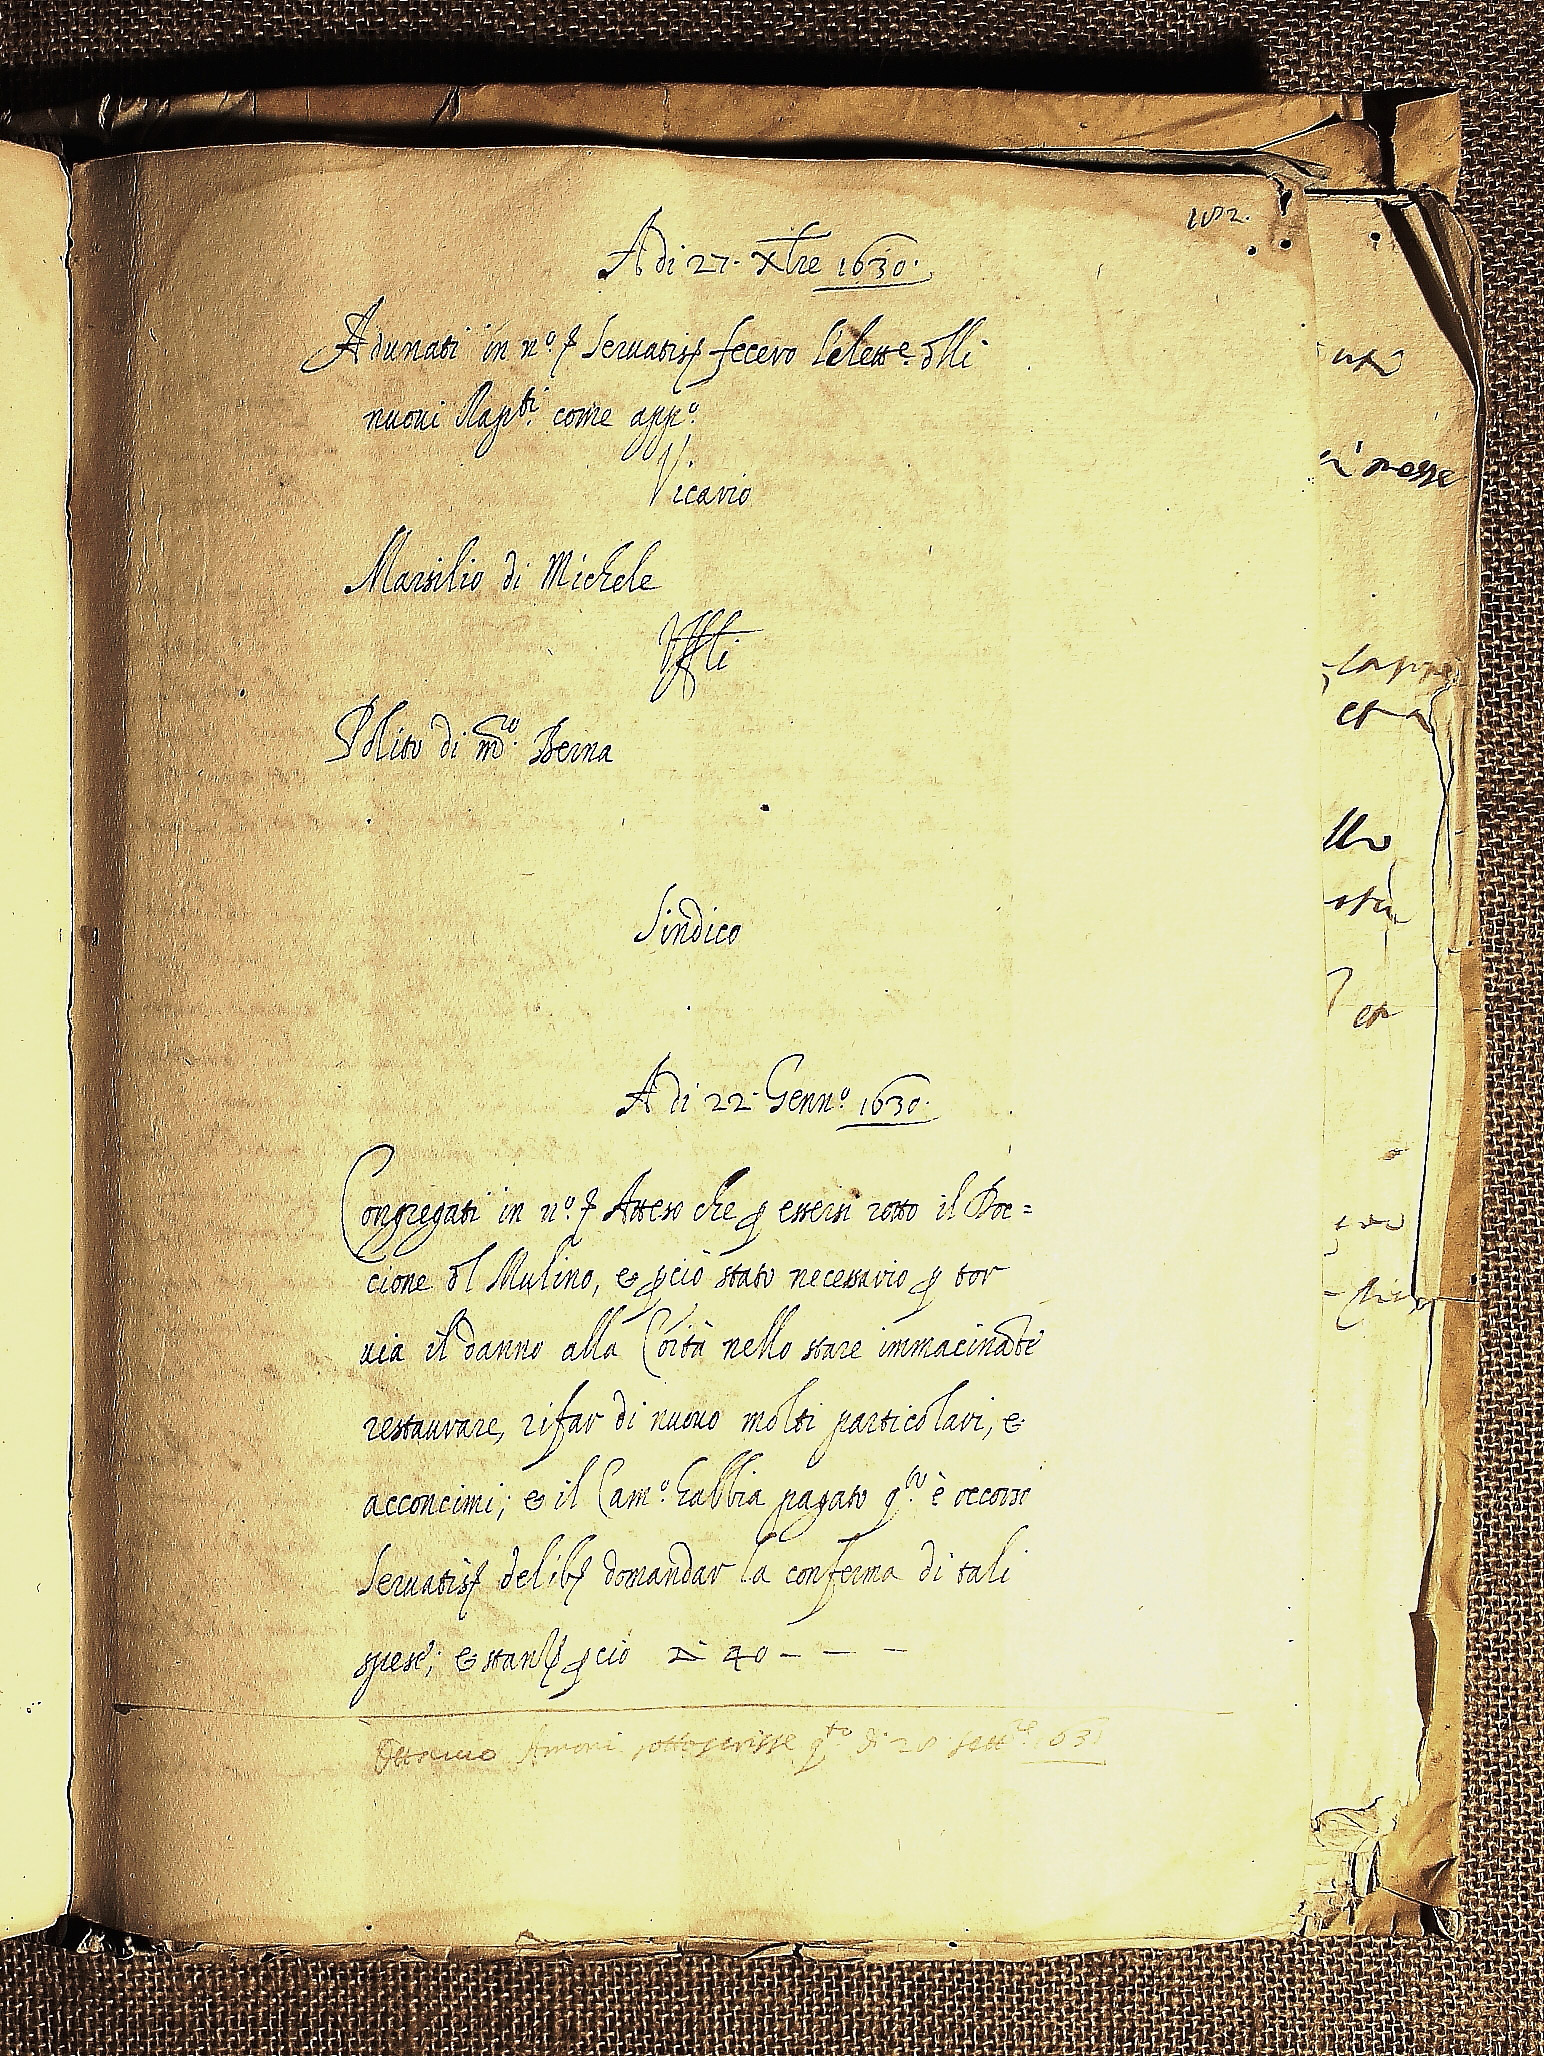 182.
A di 27. Xbre 1630.
Adunati in n.º &c. Servatis &c. fecero l'elett.e dlli
nuovi Rapp.ti come app.º
Vicario
Marsilio di Michele
Uffli
Polito di m.º Berna
Sindico
A di 22. Genn.º 1630.
Congregati in n.º &c. Atteso che p essersi rotto il Boc=
cione dl Mulino, e pciò stato necessario p tor
via il danno alla Coità nello stare immacinate
restaurare, rifar di nuovo molti particolari, e
acconcimi; e il Cam.º habbia pagato q.to è occorso
Servatis &c. delib &c. domandar la conferma di tali
spese; e stanz p ciò △ 40 - - -
Ottavio Amoni sottoscrisse q.to dì 28 sett.re 1631
uta
posse
et a
llo
et